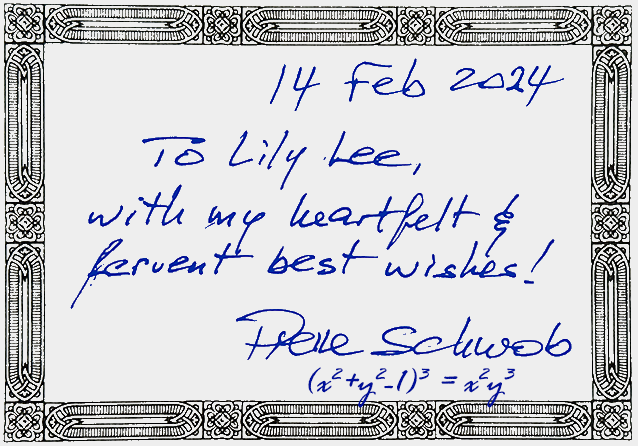 14 Feb 2024
To Lily Lee,
with my heartfelt &
fervent best wishes!
Pierre Schwob
(x²+y²-1)³ = x²y³